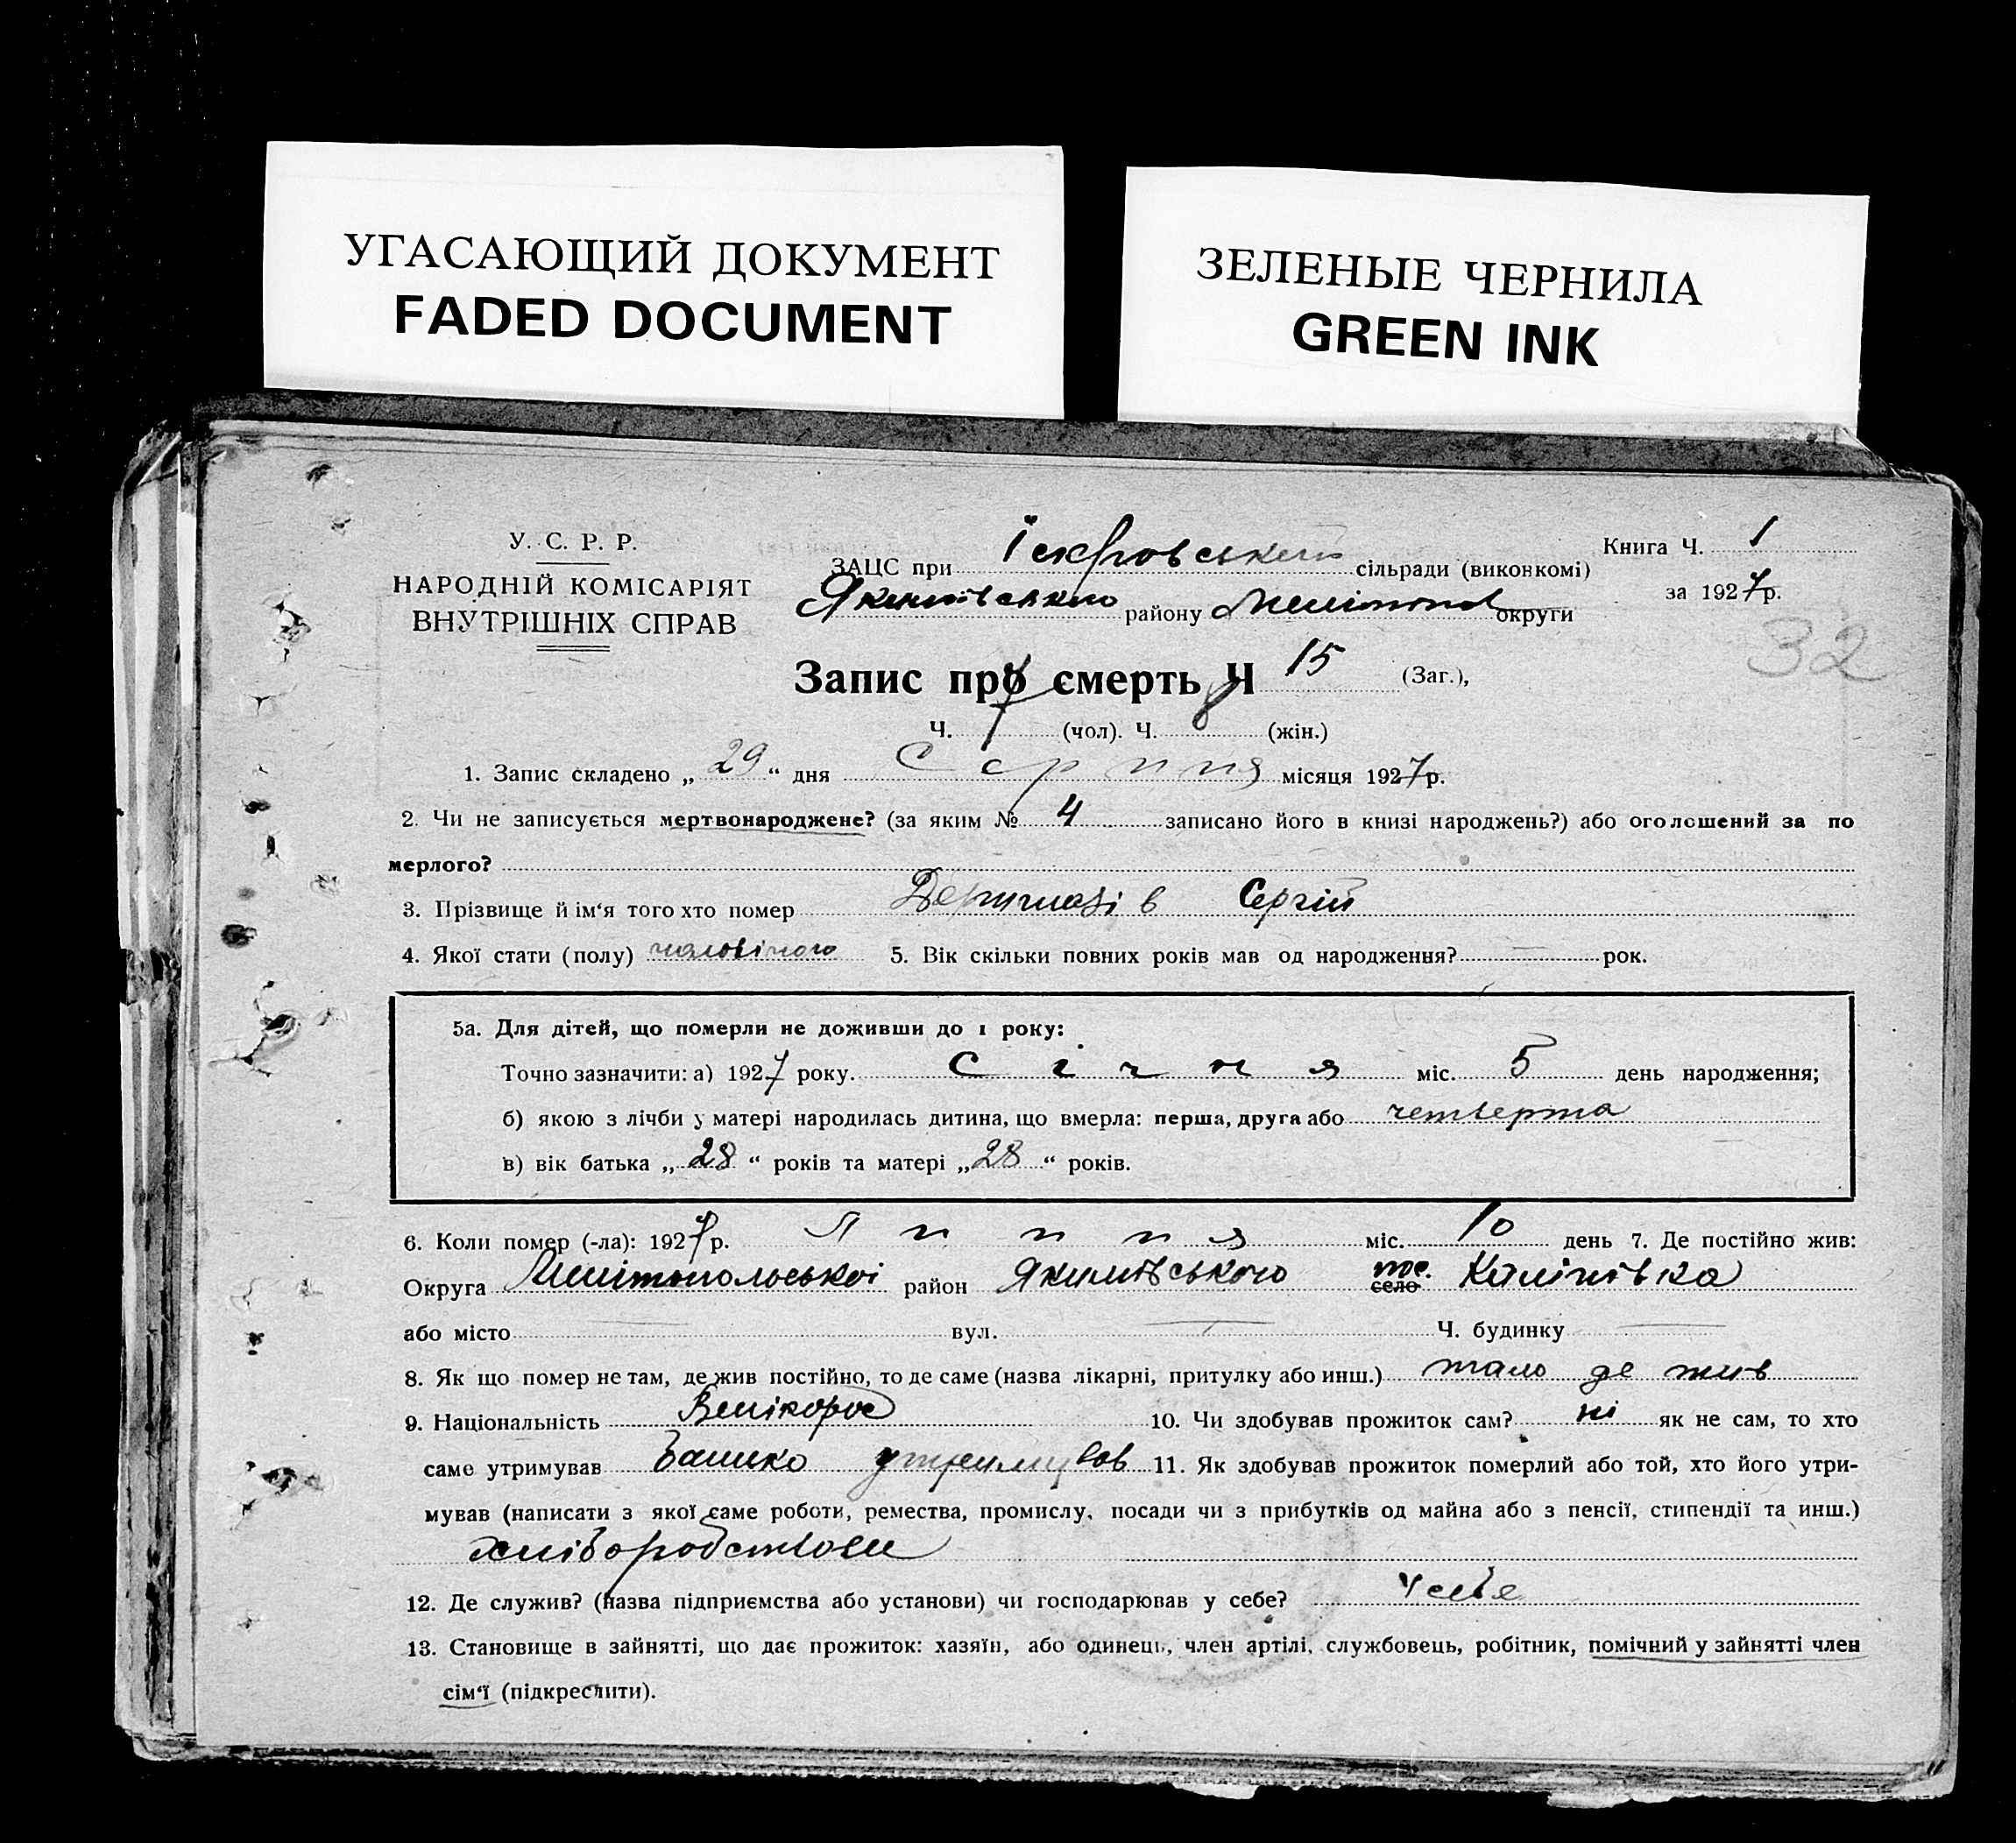 УГАСАЮЩИЙ ДОКУМЕНТ
FADED DOCUMENT
ЗЕЛЕНЫЕ ЧЕРНИЛА
GREEN INK
У. С. Р. Р.
НАРОДНІЙ КОМІСАРІЯТ
ВНУТРІШНІХ СПРАВ
ЗАЦС при Їскровській сільради (виконкомі)
Якимівського району Мелітопол округи
Книга Ч. 1
за 1927р.
32
Запис про смерть Ч 15 (Заг.),
Ч. 7 (чол). Ч. 8 (жін.)
1. Запис складено „ 29 “ дня Серпня місяця 1927р.
2. Чи не записується мертвонароджене? (за яким № 4 записано його в книзі народжень?) або оголошений за по
мерлого?
3. Прізвище й ім‘я того хто помер Сергій
4. Якої стати (полу) чоловічого 5. Вік скільки повних років мав од народження? — рок.
5а. Для дітей, що померли не доживши до 1 року:
Точно зазначити: а) 1927 року. Січня міс. 5 день народження;
б) якою з лічби у матері народилась дитина, що вмерла: перша, друга або четверта
в) вік батька „ 28 “ років та матері „ 28 “ років.
6. Коли помер (-ла): 1927р. Липня міс. 10 день 7. Де постійно жив:
Округа Мелітопольської район Якимівського пос. село Калінівка
або місто — вул. — Ч. будинку —
8. Як що помер не там, де жив постійно, то де саме (назва лікарні, притулку або инш.) тамо де жив
9. Національність Велікорос 10. Чи здобував прожиток сам? ні як не сам, то хто
саме утримував Батько утримував 11. Як здобував прожиток померлий або той, хто його утри-
мував (написати з якої саме роботи, ремества, промислу, посади чи з прибутків од майна або з пенсії, стипендії та инш.)
хліборобством
12. Де служив? (назва підприємства або установи) чи господарював у себе? У себе
13. Становище в зайнятті, що дає прожиток: хазяїн, або одинець, член артілі, службовець, робітник, помічний у зайнятті член
сім‘ї (підкреслити).